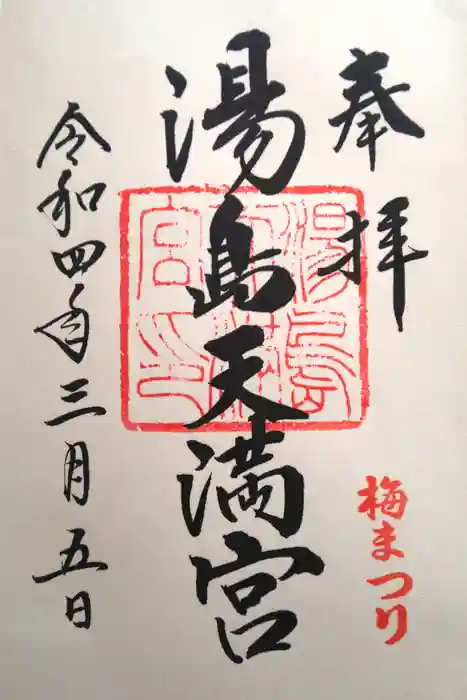 奉拝
梅まつり
湯島天満宮
令和四年三月五日
湯島天満宮印